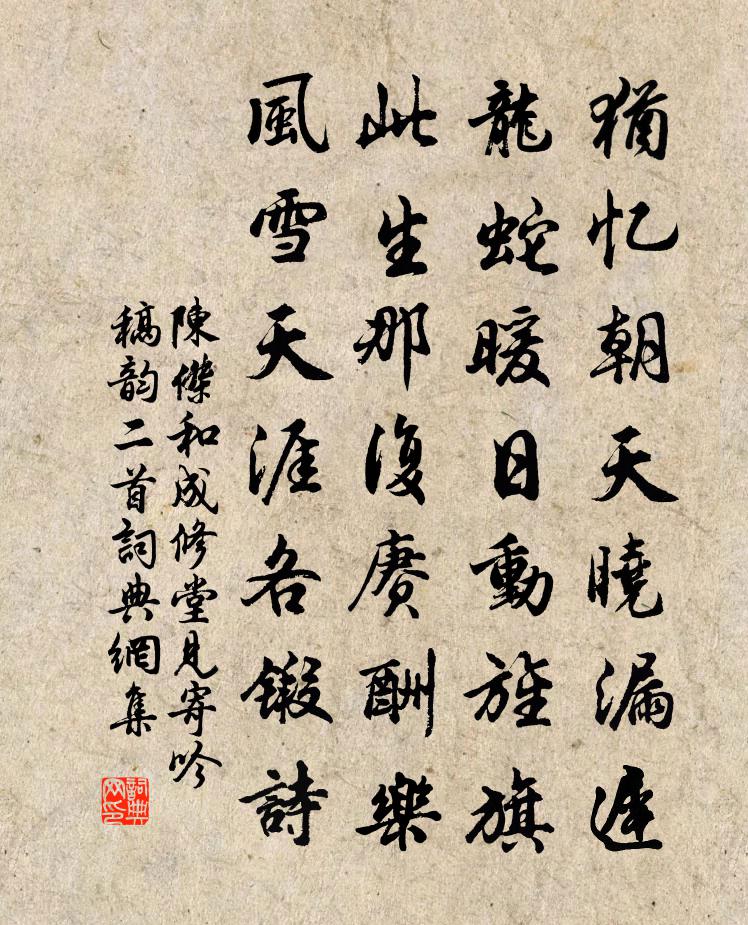 猶忆朝天曉漏遲
龍蛇暖日動旌旗
此生那復賡酬樂
風雪天涯各鍛詩
陳傑和成修堂見寄吟
稿韵二首詞典網集
詞典
网印